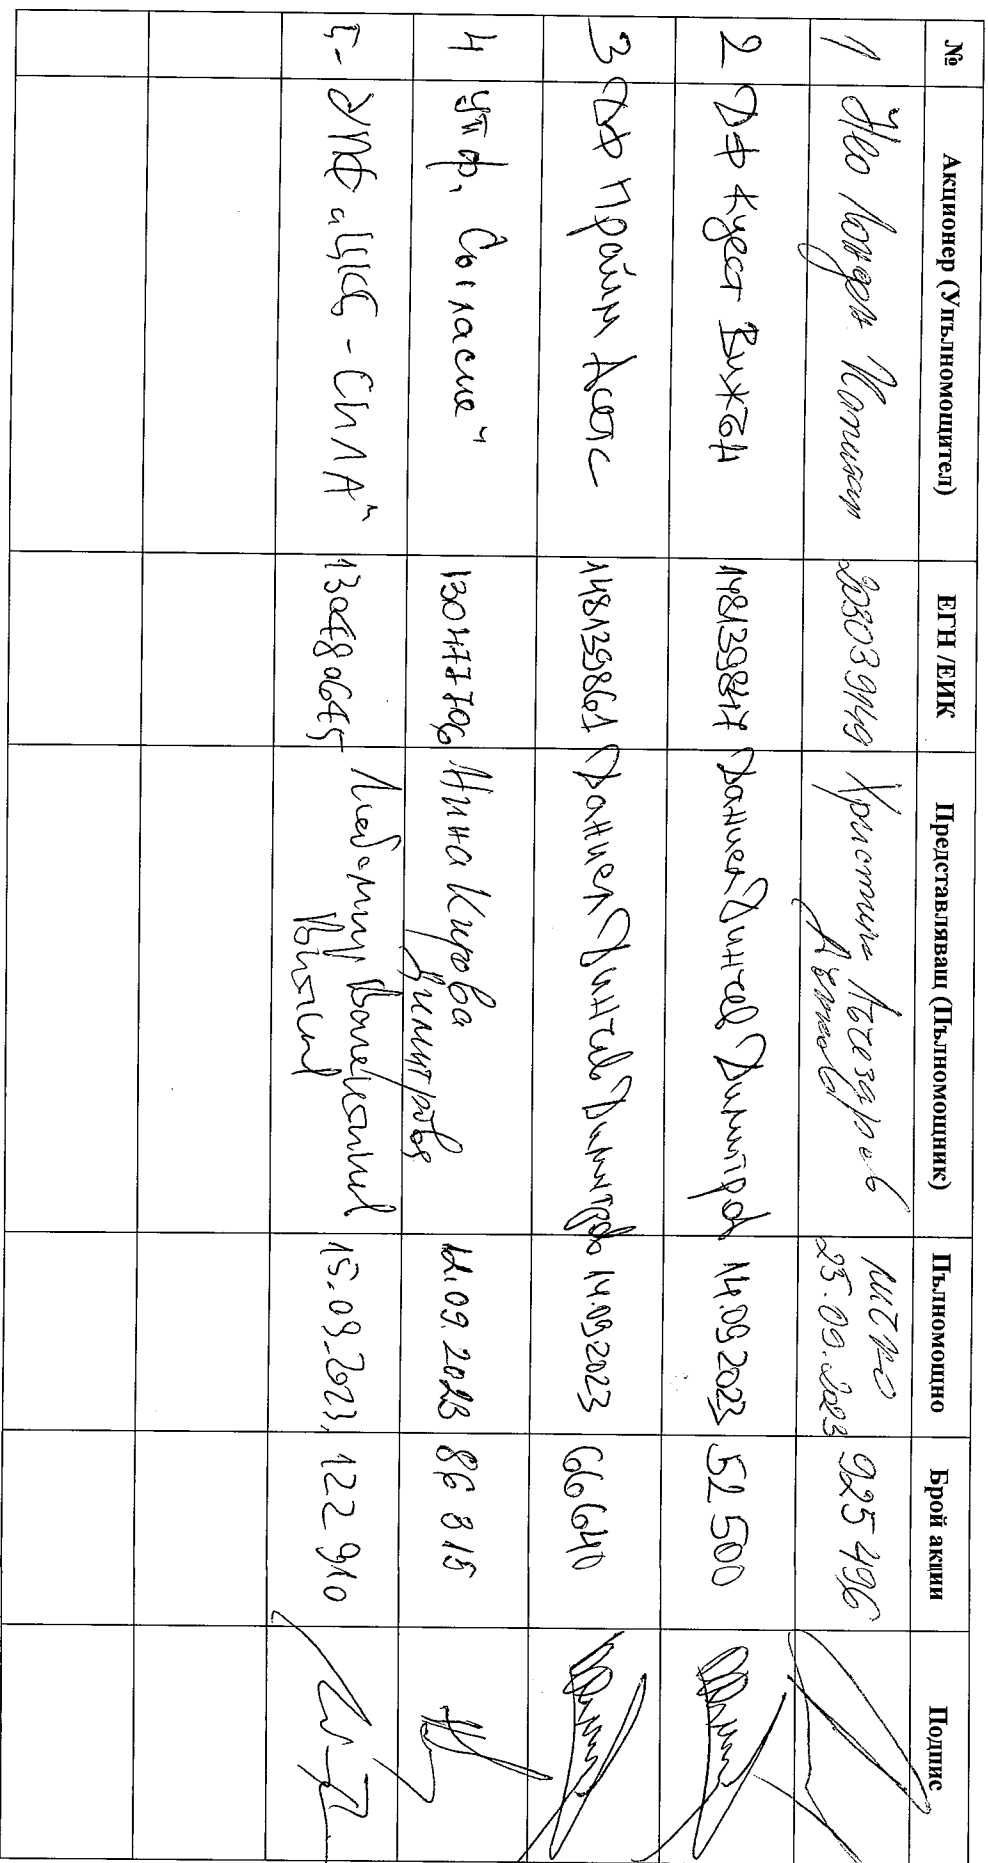 № Акционер (Упълномощител) ЕГН /ЕИК Представляващ (Пълномощник) Пълномощно Брой акции Подпис
1 Ню Лондон Кепитал 203039149 Христина Лъчезарова 25.09.2023 925 496
2 ДФ Куест Вижън 148139847 Даниел Динчев Димитров 14.09.2023 52 500
3 ДФ Прайм Асетс 148139861 Даниел Динчев Димитров 14.09.2023 66640
4 УПФ „Съгласие" 130477706 Нина Кирова 12.09.2023 86 815
Димитрова
5- УПФ „ЦКБ - СИЛА" 130480645 Любомир 15.09.2023, 122 910